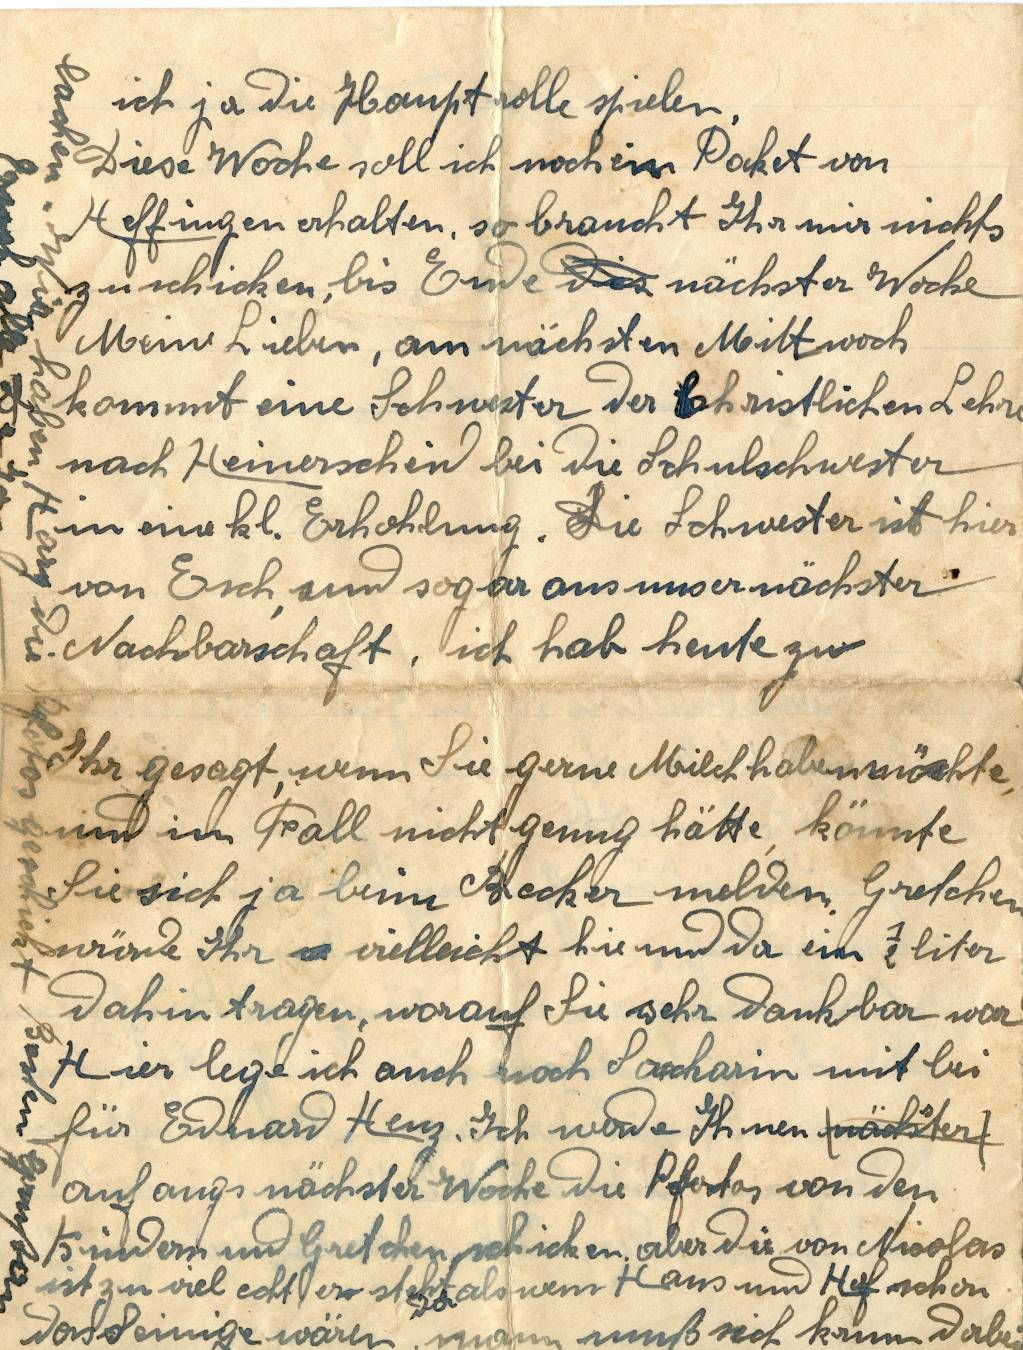 ich ja die Hauptrolle spielen.
Diese Woche soll ich noch ein Paket von
Heffingen erhalten, so braucht Ihr mir nichts
zu schicken, bis Ende die nächster Woche
Meine Lieben, am nächsten Mittwoch
kommt eine Schwester der Christlichen Lehre
nach Heinerscheid bei die Schulschwester
in eine kl. Erhohlung. Die Schwester ist hier
von Esch, und sogar aus unser nächster
Nachbarschaft, ich hab heute zu
Ihr gesagt, wenn Sie gerne Milch haben möchte,
und im Fall nicht genug hätte, könnte
Sie sich ja beim Becker melden. Gretchen
würde Ihr vielleicht hie und da ein ½ liter
dahin tragen, worauf Sie sehr dankbar war
Hier lege ich auch noch Sacharin mit bei
für Eduard Henz. Ich werde Ihnen (nächster)
anfangs nächster Woche die Pfotos von den
Kindern und Gretchen schicken, aber die von Nicolas
ist zu viel echt er steht da als wenn Hans und Hof schon
das Seinige wären, mann muß sich krum dabei
lachen. Wir haben Harg die Pfotos geschickt